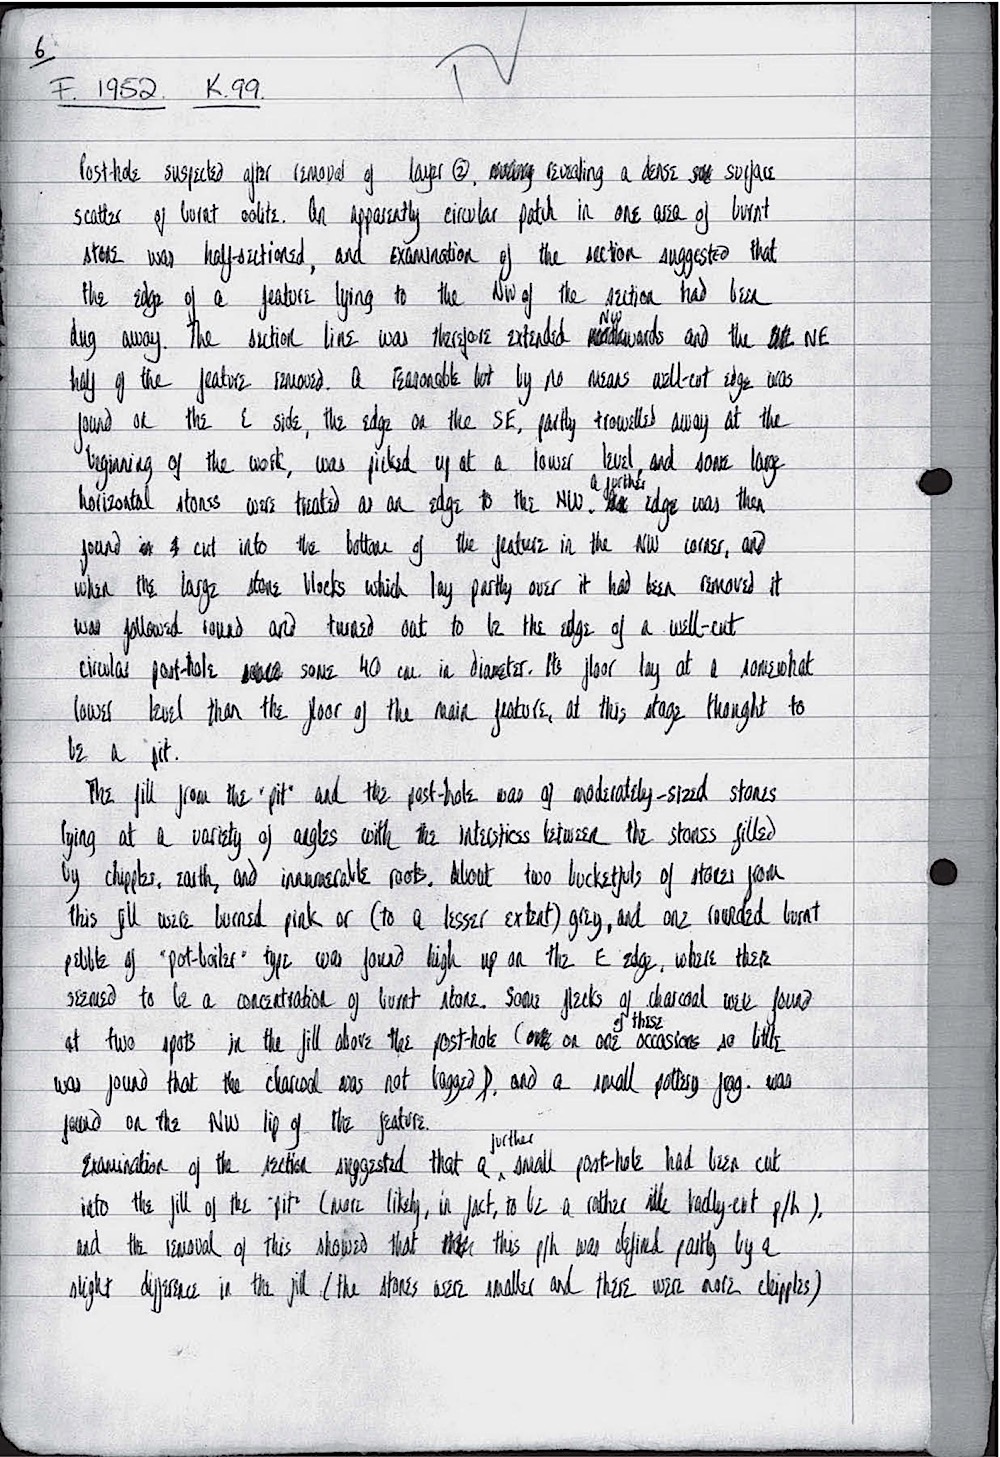 6
F. 1952. K.99.
Post-hole suspected after removal of layer ②, revealing a dense surface
scatter of burnt oolite. An apparently circular patch in one area of burnt
stone was half-sectioned, and examination of the section suggested that
the edge of a feature lying to the NW of the section had been
dug away. The section line was therefore extended NWwards and the NE
half of the feature removed. A reasonable but by no means well-cut edge was
found on the E side, the edge on the SE, partly trowelled away at the
beginning of the work, was picked up at a lower level, and some large
horizontal stones were treated as an edge to the NW. a further edge was then
found cut into the bottom of the feature in the NW corner, and
when the large stone blocks which lay partly over it had been removed it
was followed round and turned out to be the edge of a well-cut
circular post-hole some 40 cm. in diameter. Its floor lay at a somewhat
lower level than the floor of the main feature, at this stage thought to
be a pit.
The fill from the "pit" and the post-hole was of moderately-sized stones
lying at a variety of angles with the interstices between the stones filled
by chipples, earth, and innumerable roots. About two bucketfuls of stones from
this fill were burned pink or (to a lesser extent) grey, and one rounded burnt
pebble of "pot-boiler" type was found high up on the E edge, where there
seemed to be a concentration of burnt stone. Some flecks of charcoal were found
at two spots in the fill above the post-hole (on one of these occasions so little
was found that the charcoal was not bagged), and a small pottery frag. was
found on the NW lip of the feature.
Examination of the section suggested that a further small post-hole had been cut
into the fill of the "pit" (more likely, in fact, to be a rather badly-cut p/h),
and the removal of this showed that this p/h was defined partly by a
slight difference in the fill (the stones were smaller and there were more chipples)